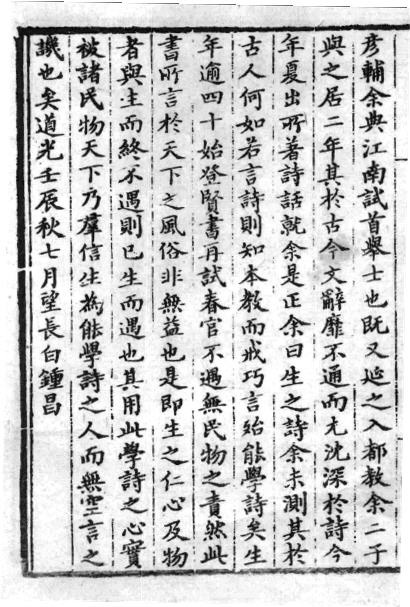 彥輔余典江南試首舉士也既又延之入都教余二子
與之居二年其於古今文辭靡不通而尤沈深於詩今
年夏出所著詩話就余是正余曰生之詩余未測其於
古人何如若言詩則知本教而戒巧言殆能學詩矣生
年逾四十始登賢書再試春官不遇無民物之責然此
書所言於天下之風俗非無益也是即生之仁心及物
者與生而終不遇則已生而遇也其用此學詩之心實
被諸民物天下乃羣信生為能學詩之人而無空言之
譏也矣道光壬辰秋七月望長白鍾昌